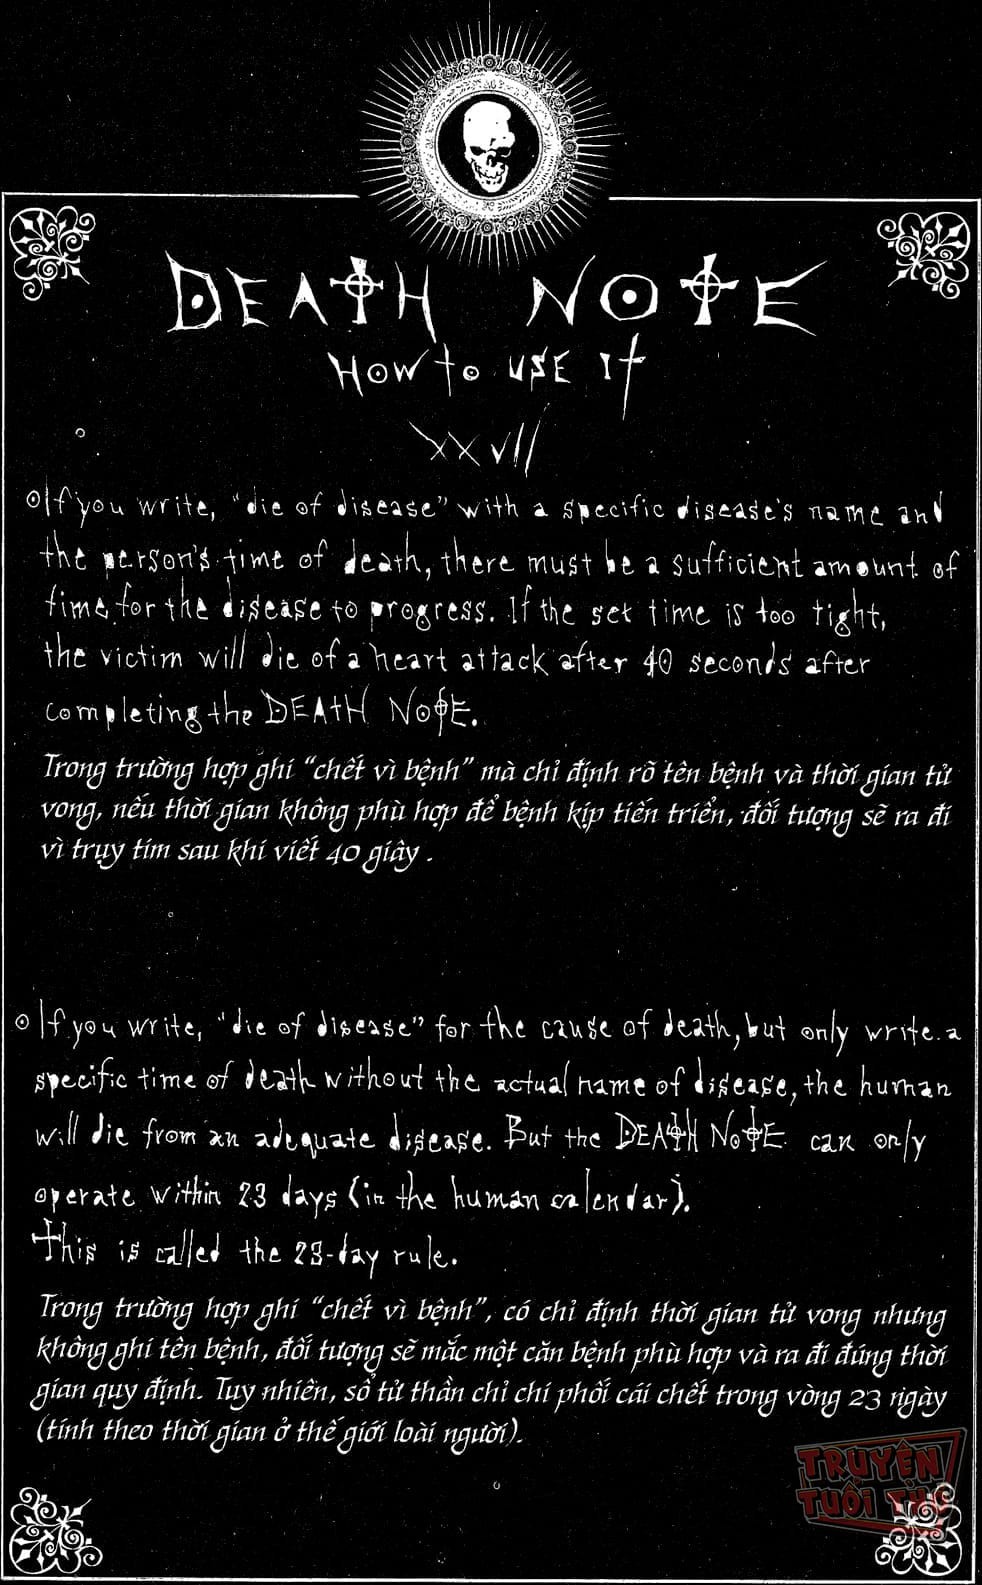 DEATH NOTE
HOW TO USE IT
XXVII
If you write, "die of disease" with a specific disease's name and
the person's time of death, there must be a sufficient amount of
time for the disease to progress. If the set time is too tight,
the victim will die of a heart attack after 40 seconds after
completing the DEATH NOTE.
Trong trường hợp ghi "chết vì bệnh" mà chỉ định rõ tên bệnh và thời gian tử
vong, nếu thời gian không phù hợp để bệnh kịp tiến triển, đối tượng sẽ ra đi
vì trụy tim sau khi viết 40 giây .
If you write, "die of disease" for the cause of death, but only write a
specific time of death without the actual name of disease, the human
will die from an adequate disease. But the DEATH NOTE can only
operate within 23 days (in the human calendar).
This is called the 23-day rule.
Trong trường hợp ghi "chết vì bệnh", có chỉ định thời gian tử vong nhưng
không ghi tên bệnh, đối tượng sẽ mắc một căn bệnh phù hợp và ra đi đúng thời
gian quy định. Tuy nhiên, sổ tử thần chỉ chi phối cái chết trong vòng 23 ngày
(tính theo thời gian ở thế giới loài người).
TRUYỆN
TUỔI